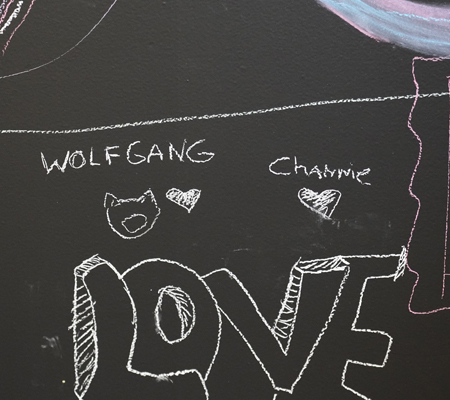 WOLFGANG Channie
LOVE